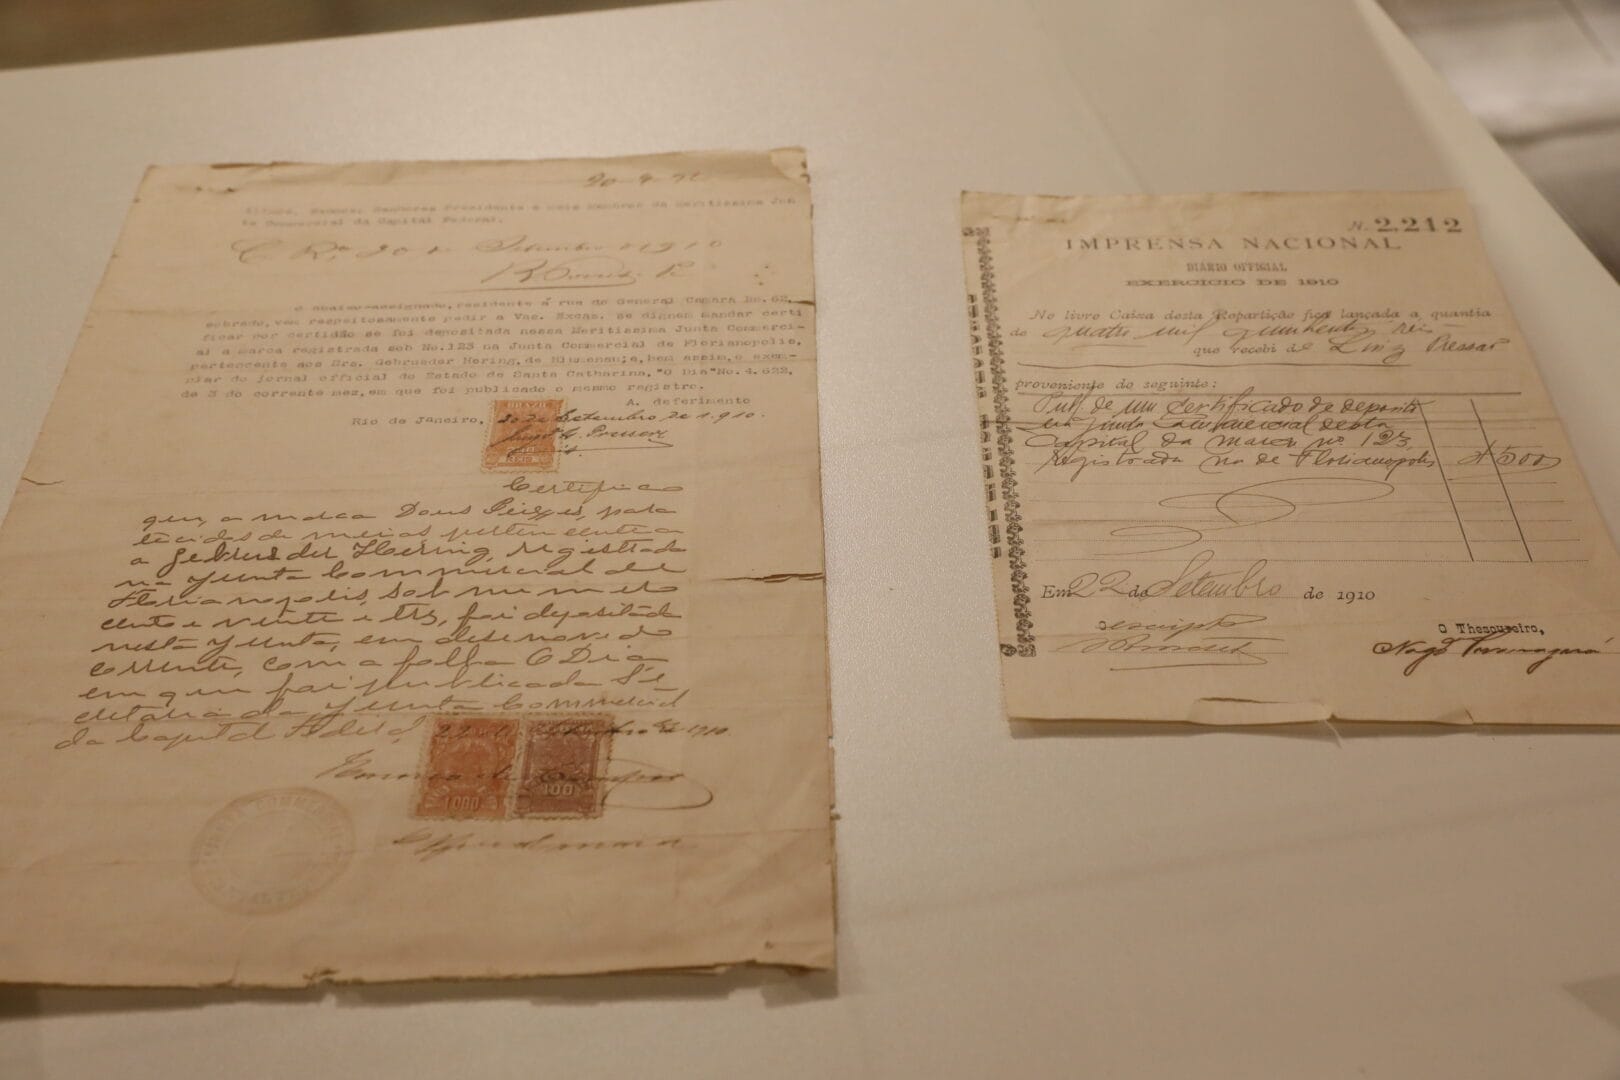 20-9-
Illmos. Exmos. Senhores Presidente e mais Membros da Meritissima Jun
ta Commercial da Capital Federal.
C Rº 20 de Setembro de 1910
o abaixo-assignado, residente á rua do General Camara No. 62,
sobrado, vem respeitosamente pedir a Vas. Excas. se dignem mandar certi
ficar por certidão se foi depositada nessa Meritissima Junta Commerci-
al a marca registrada sob No.123 na Junta Commercial de Florianopolis,
pertencente aos Srs. Gebrueder Hering, de Blumenau; e, bem assim, o exem-
plar do jornal official do Estado de Santa Catharina, "O Dia" No. 4.622,
de 3 do corrente mez, em que foi publicado o mesmo registro.
A. deferimento
Rio de Janeiro, 20 de Setembro de 1910.
BRAZIL
REIS
Certifico
que, a marca Dous Peixes, para
tecidos de meias pertencente a
a Gebrueder Hering, registrada
na Junta Commercial de
Florianopolis, sob numero
cento e vinte e tres, foi depositada
nesta Junta, em desenove do
corrente, com a folha O Dia
em que foi publicada Se
cretaria da Junta Commercial
da Capital Federal, 22 de Setembro de 1910.
1000
100
N. 2.212
IMPRENSA NACIONAL
DIÁRIO OFFICIAL
EXERCICIO DE 1910
No livro Caixa desta Repartição fica lançada a quantia
de quatro mil quinhentos reis
que recebi de Luiz Pressar
proveniente do seguinte:
Publ. de um certificado de deposito
na Junta Commercial desta
Capital da marca nº 123,
registrada na de Florianopolis 4$500
Em 22 de Setembro de 1910
O escripto
O Thesoureiro,